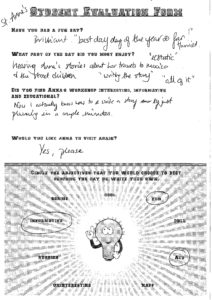 St Anne's
STUDENT EVALUATION FORM
HAVE YOU HAD A FUN DAY?
Brilliant "best day of the year so far!"
WHAT PART OF THE DAY DID YOU ENJOY MOST?
Hearing Anna's stories about her travels to Mexico
& the street children "writing the story" "all of it"
DID YOU FIND ANNA'S WORKSHOP INTERESTING, INFORMATIVE
AND EDUCATIONAL?
Now I actually know how to write a story and
planning in a simple
WOULD YOU LIKE ANNA TO VISIT AGAIN?
Yes, please
CIRCLE THE ADJECTIVES THAT YOU WOULD CHOOSE TO BEST
DESCRIBE THE DAY OR WRITE YOUR OWN.
BORING
COOL
FUN
INTERESTING
DULL
RUBBISH
UNINTERESTING
HAPPY